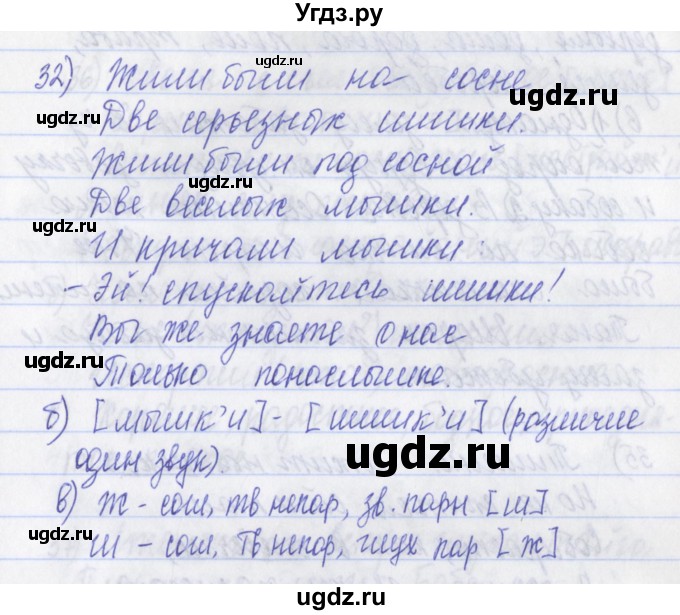 Угдз.ру
32) Жили были на сосне
Две серьезных шишки.
Жили были под сосной
Две веселых мышки.
И кричали мышки:
- Эй! спускайтесь шишки!
Вы же знаете о нас
Только понаслышке.
б) [мышк'и] - [шишк'и] (различие
один звук).
в) ж - сош, тв непар, зв. парн [ш]
ш - сош, тв непар, глух пар [ж]
ugdz.ru
ugdz.ru
ugdz.ru
ugdz.ru
ugdz.ru
ugdz.ru
ugdz.ru
ugdz.ru
ugdz.ru
ugdz.ru
ugdz.ru
ugdz.ru
ugdz.ru
ugdz.ru